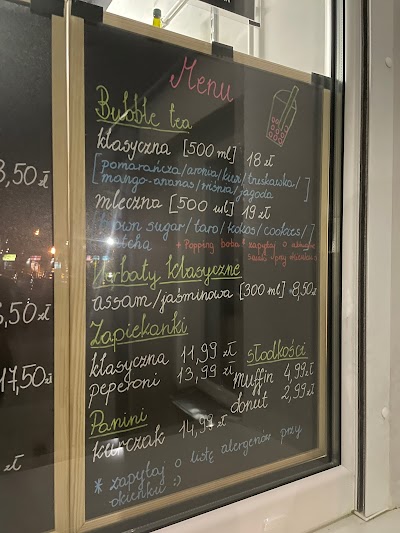 8,50 zł
6,50 zł
17,50 zł
zł
Menu
Bubble tea
klasyczna [500 ml] 18 zł
[pomarańcza/aronia/kiwi/truskawka/
mango-ananas/wiśnia/jagoda]
mleczna [500 ml] 19 zł
brown sugar/taro/kokos/cookies/]
+ Popping boba * zapytaj o
Herbaty klasyczne
assam/jaśminowa [300 ml] 8,50 zł
Zapiekanki
klasyczna 11,99 zł
peperoni 13,99 zł
słodkości
Muffin 4,99 zł
donut 2,99 zł
Panini
kurczak 14,99 zł
* zapytaj o listę alergenów przy
okienku :)